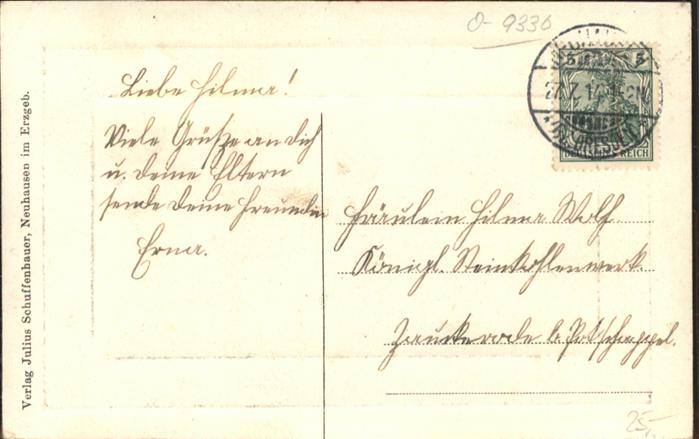 o- 9330
Liebe Hilma!
Viele Grüße an dich
u. deine Eltern
sende deine Freundin
Erna.
Fräulein Hilma Wolf.
Königl. Steinkohlenwerk.
Zauckerode b. Potschappel.
Verlag Julius Schuffenhauer, Neuhausen im Erzgeb.
5 5
REICH
25,-